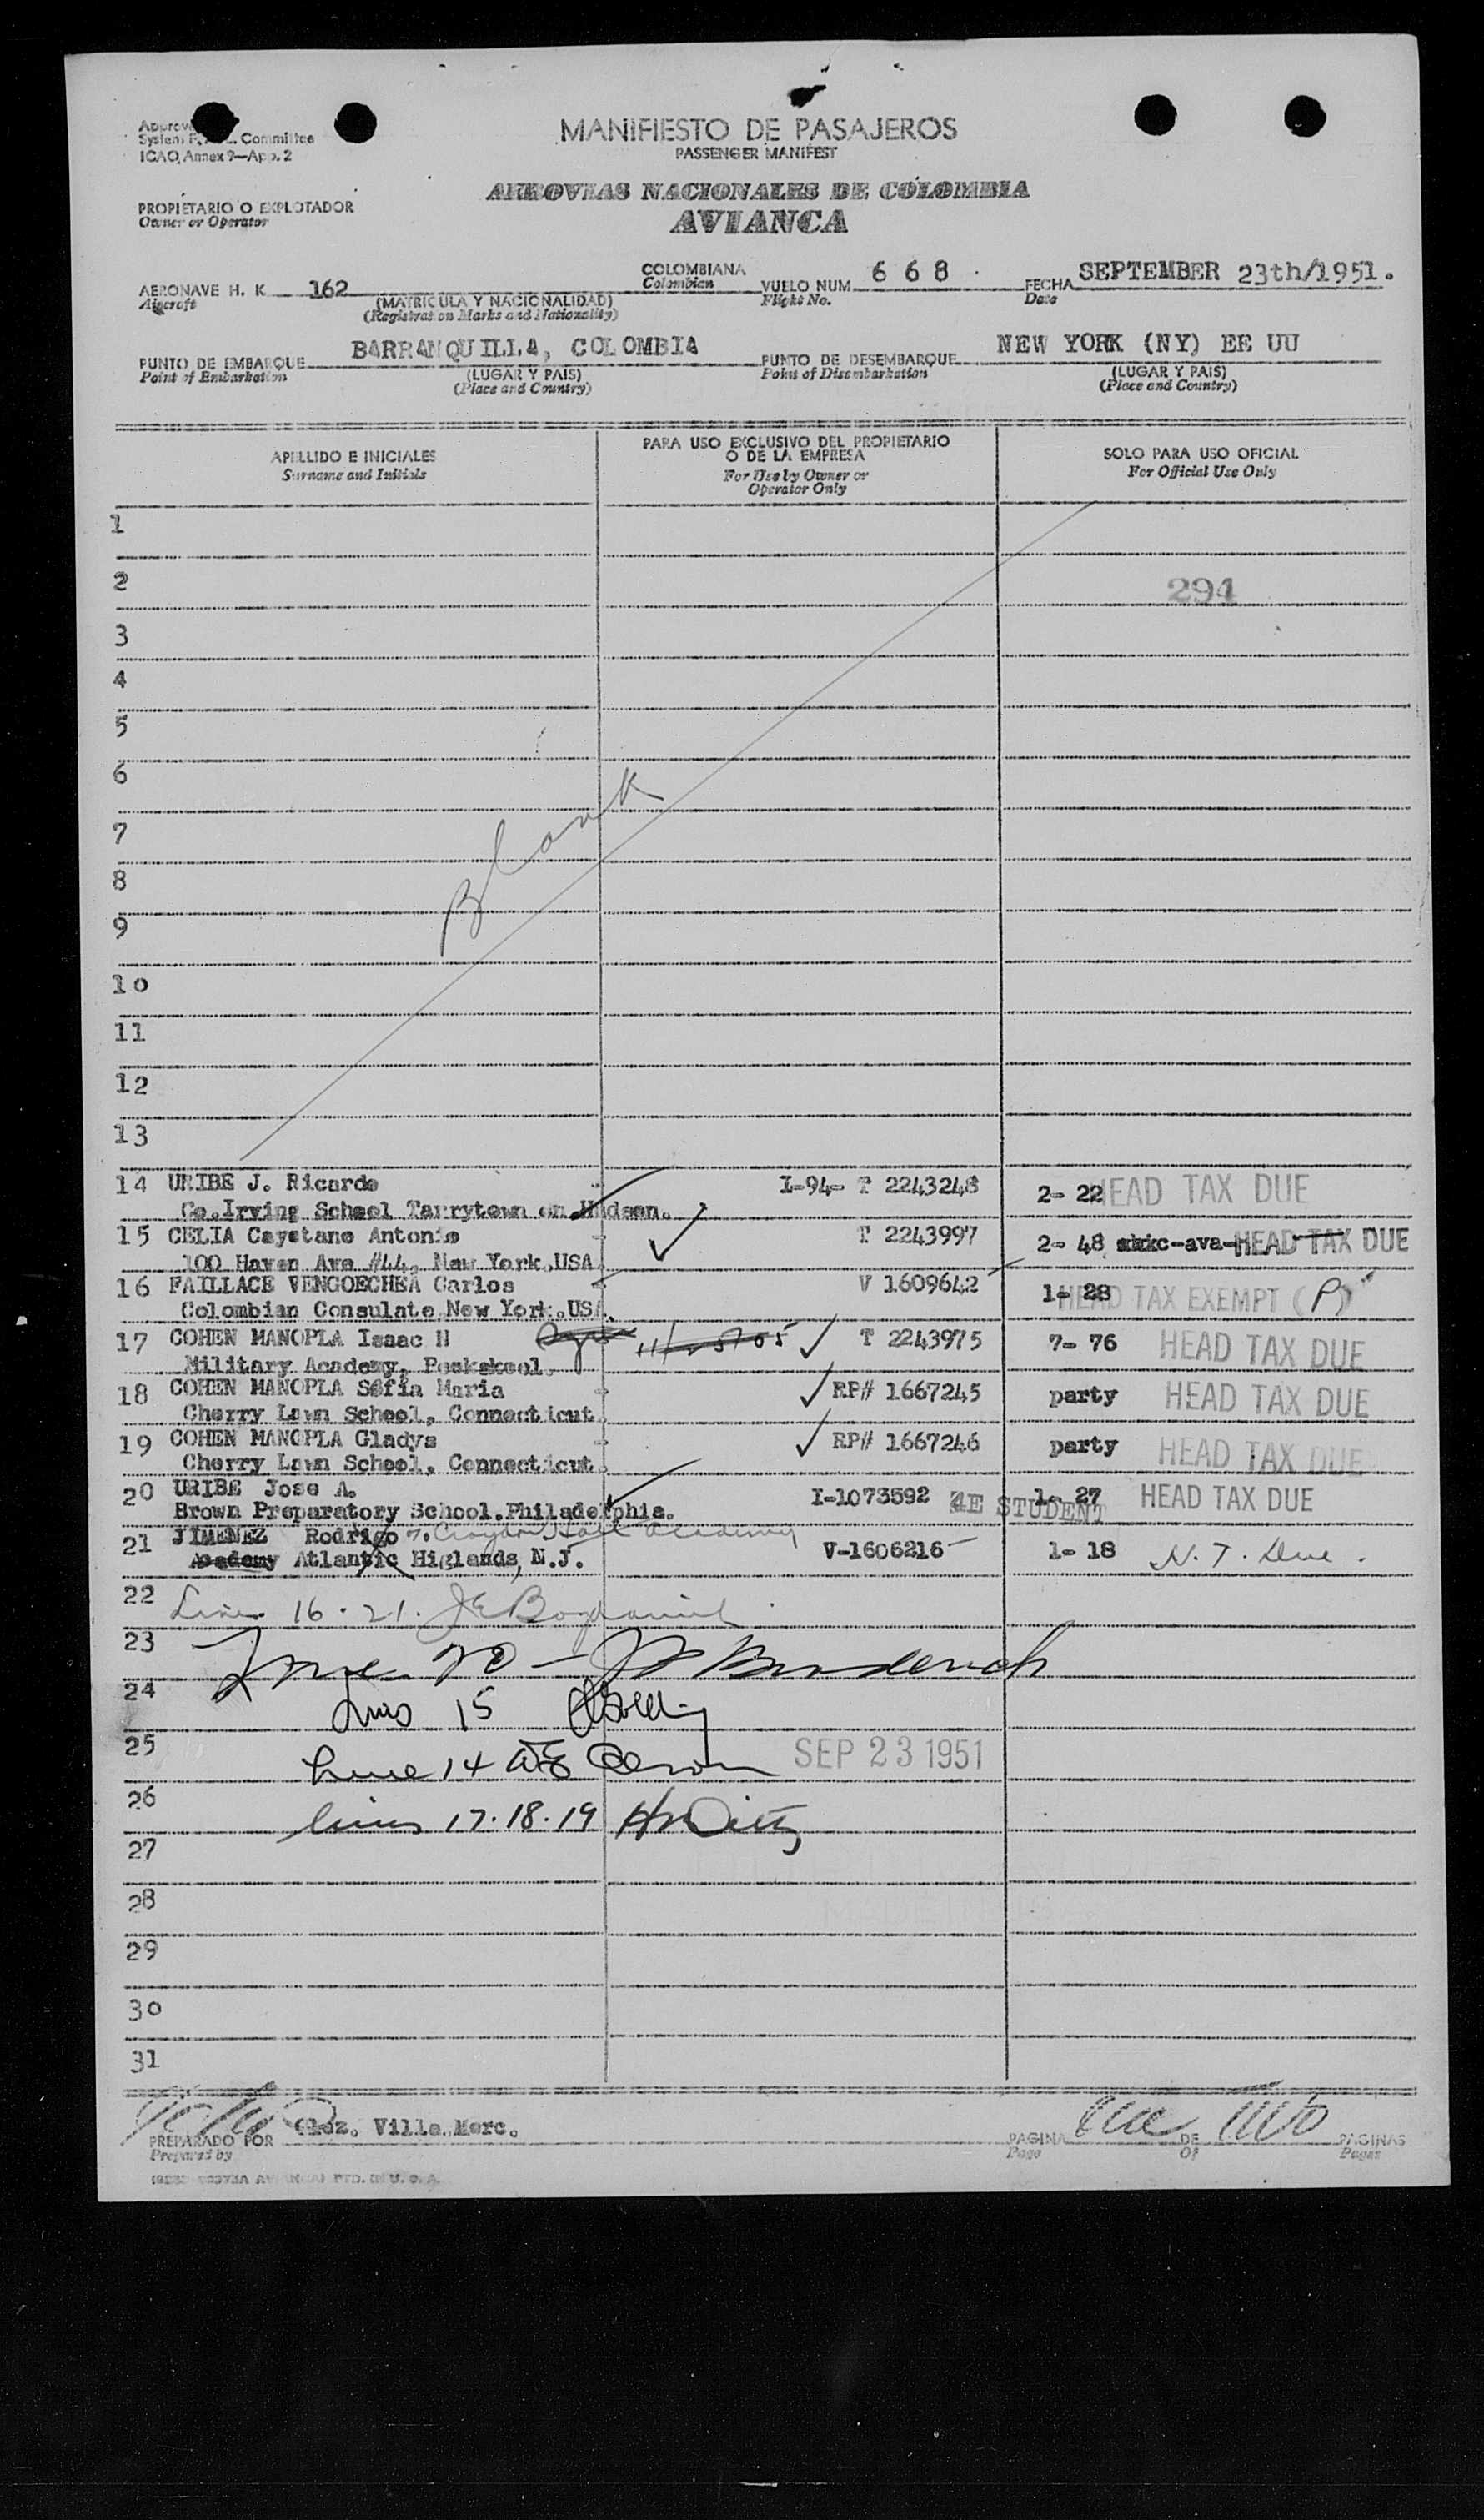 System F. Committee
ICAO, Annex 9—App. 2
MANIFIESTO DE PASAJEROS
PASSENGER MANIFEST
AEROVIAS NACIONALES DE COLOMBIA
AVIANCA
PROPIETARIO O EXPLOTADOR
Owner or Operator
AERONAVE H. K 162
Aircraft
(MATRICULA Y NACIONALIDAD)
(Registration Marks and Nationality)
COLOMBIANA
Colombian
VUELO NUM. 6 6 8
Flight No.
FECHA SEPTEMBER 23th/1951.
Date
PUNTO DE EMBARQUE BARRANQUILLA, COLOMBIA
Point of Embarkation
(LUGAR Y PAIS)
(Place and Country)
PUNTO DE DESEMBARQUE NEW YORK (NY) EE UU
Point of Disembarkation
(LUGAR Y PAIS)
(Place and Country)
APELLIDO E INICIALES
Surname and Initials
PARA USO EXCLUSIVO DEL PROPIETARIO
O DE LA EMPRESA
For Use by Owner or
Operator Only
SOLO PARA USO OFICIAL
For Official Use Only
1
2 294
3
4
5
6
Blank
7
8
9
10
11
12
13
14 URIBE J. Ricardo I-94- T 2243248 2- 22 HEAD TAX DUE
Co.Irving School Tarrytown on Hudson.
15 CELIA Cayetano Antonio T 2243997 2- 48 HEAD TAX DUE
100 Haven Ave #44, New York,USA
16 FAILLACE VENGOECHEA Carlos V 1609642 1- 28 HEAD TAX EXEMPT (P)
Colombian Consulate New York,USA.
17 COHEN MANOPLA Isaac H T 2243975 7- 76 HEAD TAX DUE
Military Academy, Peekskool.
18 COHEN MANOPLA Sofia Maria RP# 1667245 party HEAD TAX DUE
Cherry Lawn School, Connecticut.
19 COHEN MANOPLA Gladys RP# 1667246 party HEAD TAX DUE
Cherry Lawn School, Connecticut.
20 URIBE Jose A. I-1073592 4E STUDENT 1- 27 HEAD TAX DUE
Brown Preparatory School.Philadelphia.
21 JIMENEZ Rodrigo Croydon Hall Academy V-1606216 1- 18 N. T. Due.
Academy Atlantic Higlands, N.J.
22 Line 16 . 21.
23
Line 20 -
24
Line 15
25 SEP 23 1951
Line 14
26
lines 17.18.19
27
28
29
30
31
PREPARADO POR Glez. Villa Merc.
Prepared by
PAGINA One DE Two PAGINAS
Page Of Pages